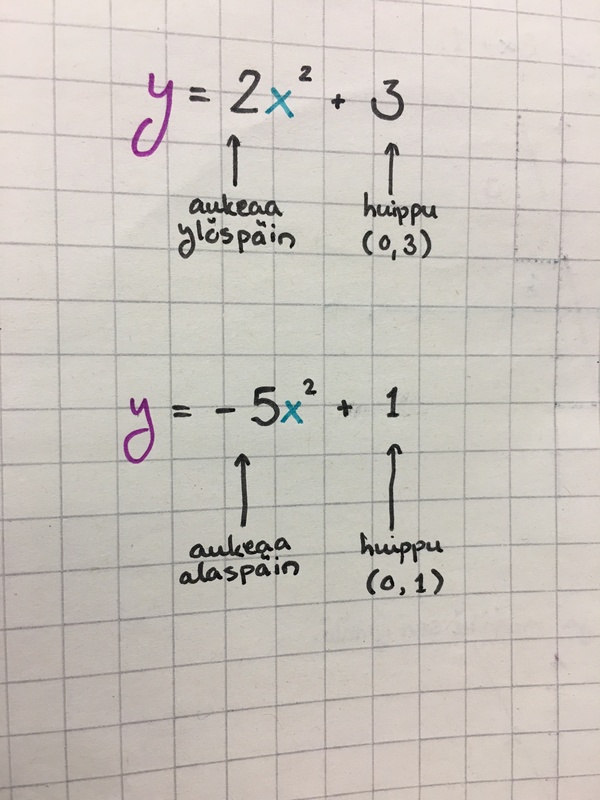 y = 2x² + 3
aukeaa
ylöspäin
huippu
(0,3)
y = - 5x² + 1
aukeaa
alaspäin
huippu
(0,1)